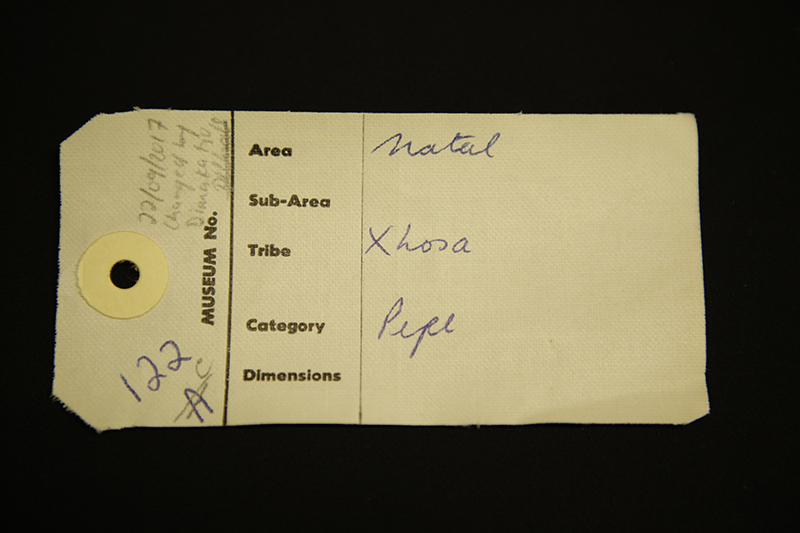 Area Natal
Sub-Area
Tribe Xhosa
Category Pipe
Dimensions
MUSEUM No.
122
A C
22/09/2017
Changed by